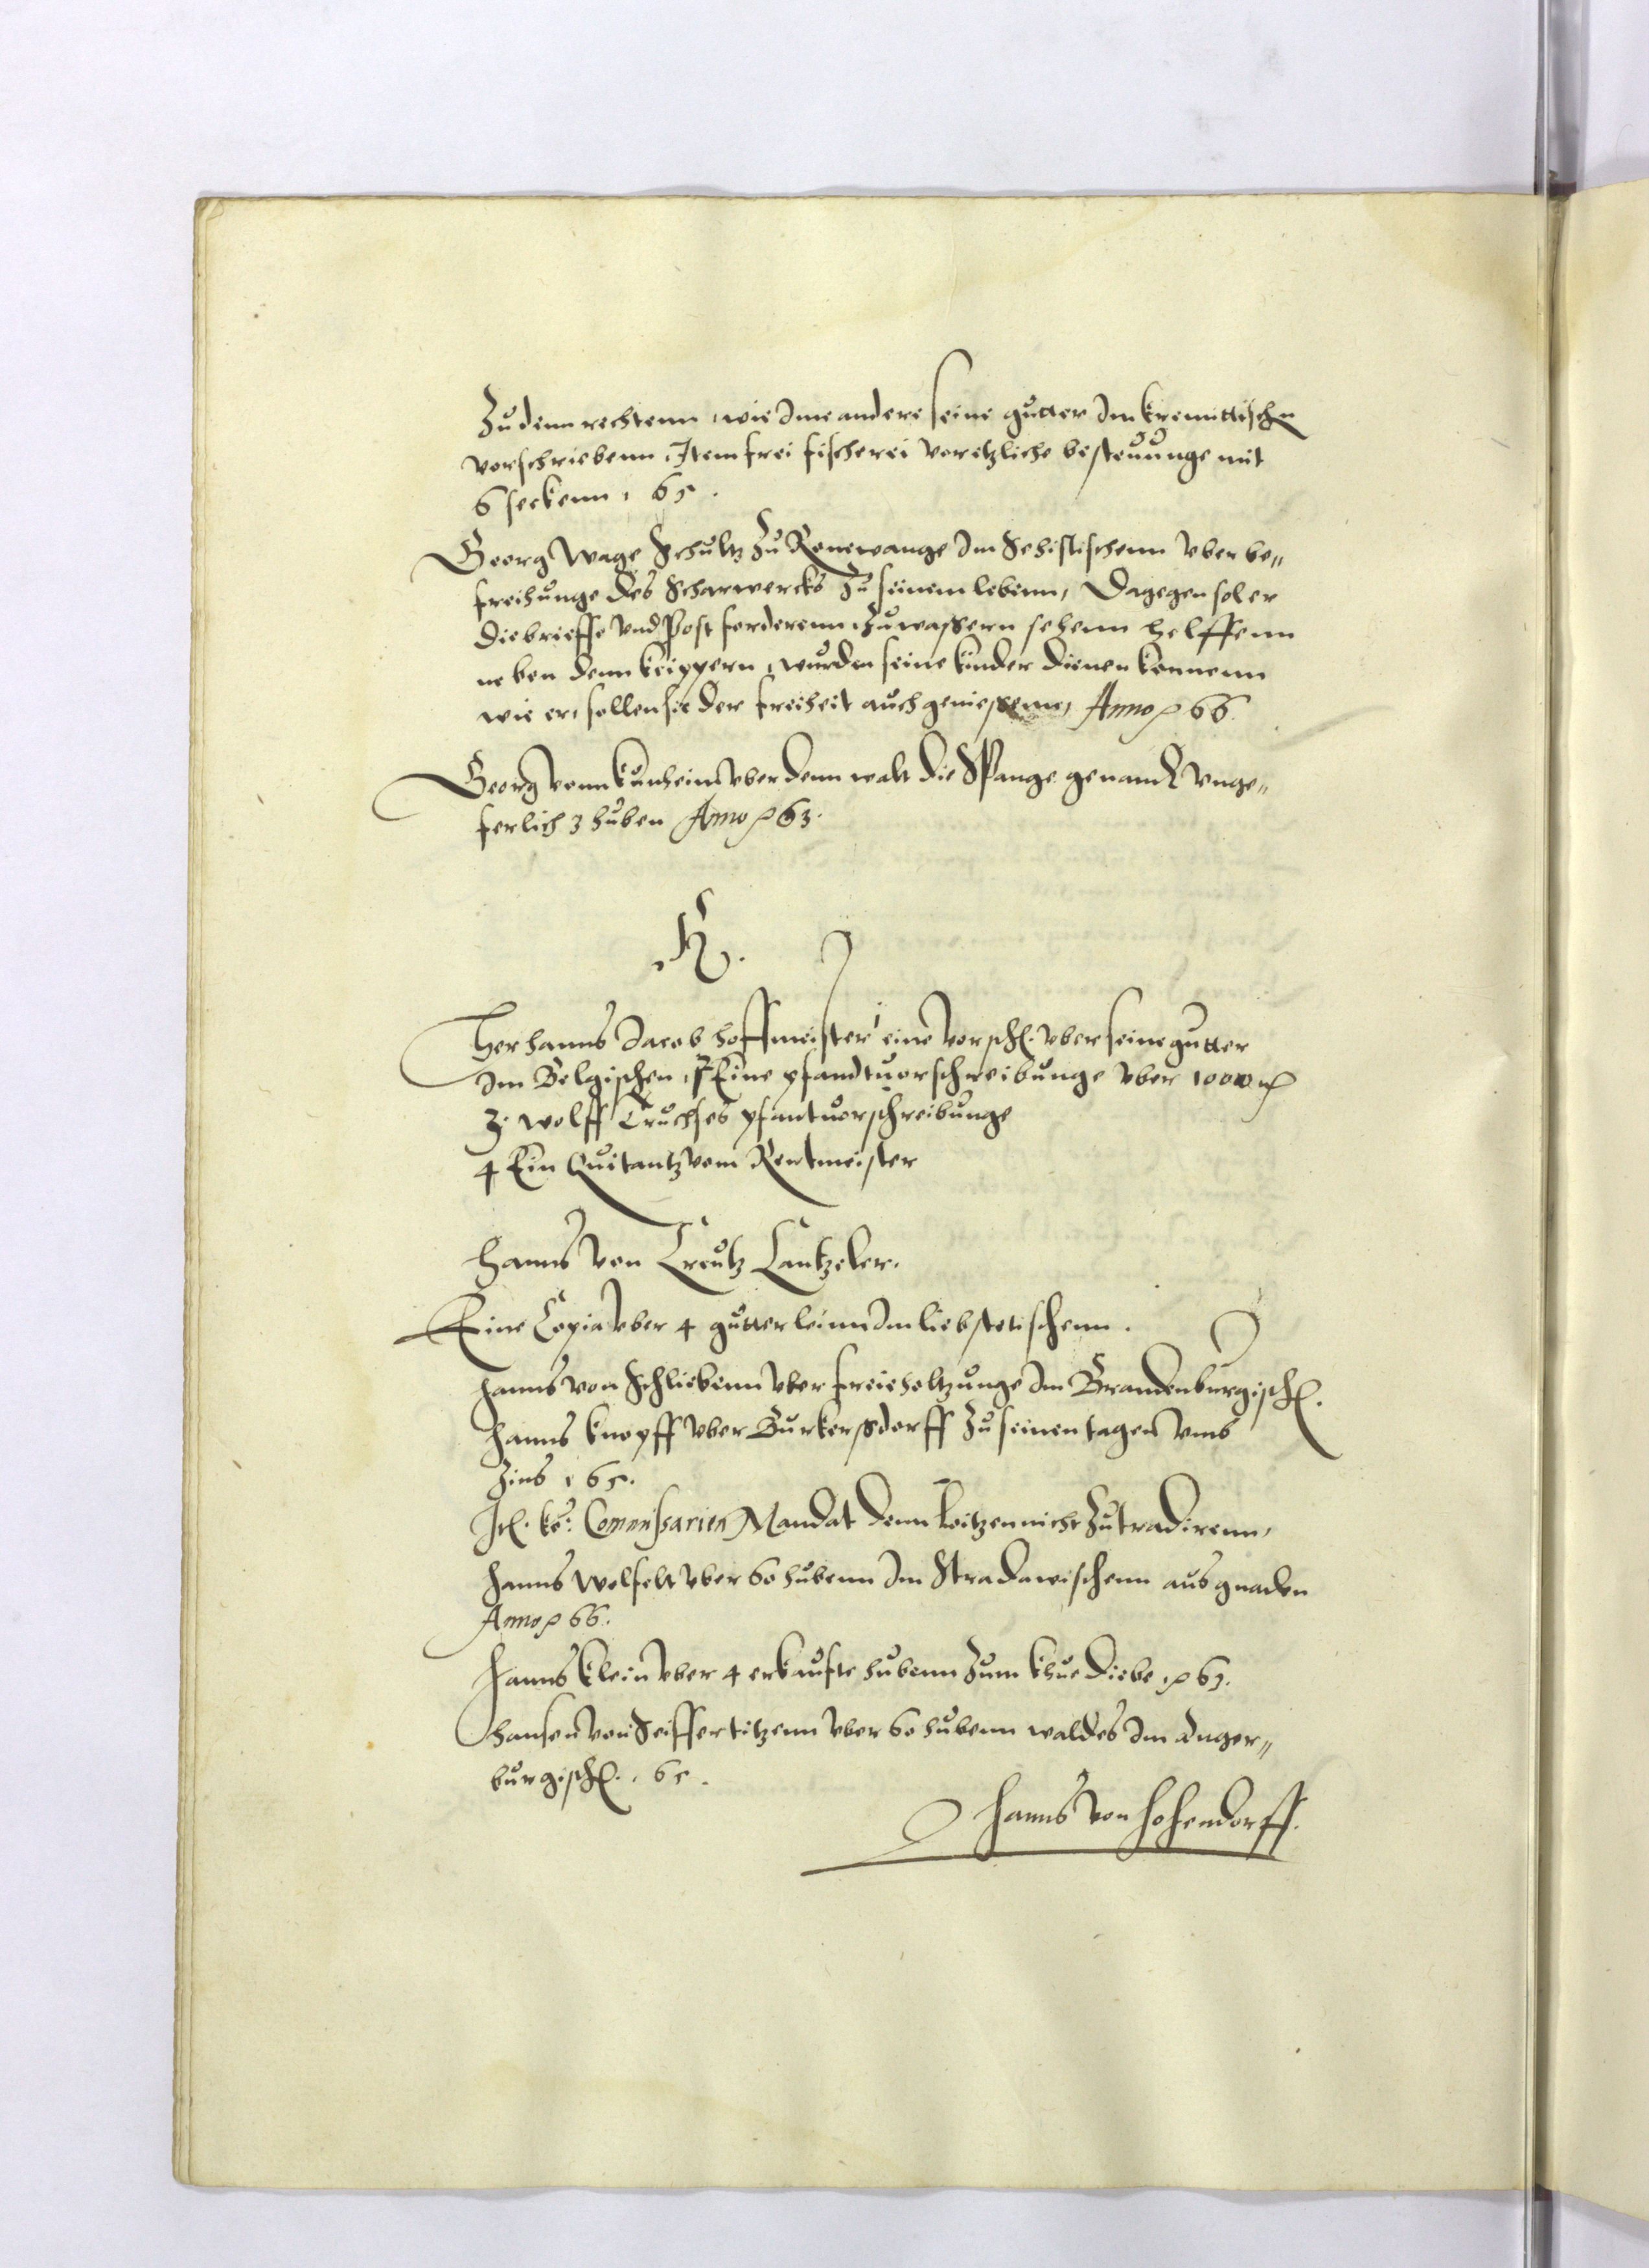 Zu denn rechtenn, wie Ime andere seine gutter Im Kremittischn
vorschriebenn, Item frei fischerei voretzliche besteuunge mit
6 seckenn, 65.
Georg Wage Schultz zu Ronewange Im Sehistischenn vber be„
freihunge des Scharwercks zu seinem lebenn, Dagegen sol er
die brieffe vnd Post forderenn, Zu waßern sehenn helffenn
neben denn keippern, wurden seine kinder dienen konnenn
wie er, sollen sie der freiheit auch genießenn, Anno 66.
Georg vonn Kunheim vber denn walt die Spange genandt vnge„
ferlich 3 huben Anno 63.
H.
Her Hanns Jacob hoffmeister 1 eine vorsch. vber seine gutter
Im Belgischen, 2 Eine pfandtuorschreibunge vber 1000
3. wolff Truchses pfantuorschreibunge
4 Ein Quitantz vom Rentmeister
Hanns von Creutz Cantzeler.
Eine Copia vber 4 gutterleinn Im liebstetischenn.
Hanns von Schliebenn vber freie holtzunge Im Brandenburgisch.
Hanns Knopff vber Burkerßdorff Zu seinen tagen vmb
Zins, 65.
It. ko: Commissarien Mandat denn Loitzen nicht zu tradirenn,
Hanns Wolfelt vber 60 hubenn Im Stradawischenn aus gnaden
Anno 66.
Hanns Klein vber 4 erkaufte hubenn zum khue diebe, 63.
Hansen von Seiffertitzenn vber 60 hubenn waldes Im Anger„
burgisch., 65.
Hanns von Hohendorff.